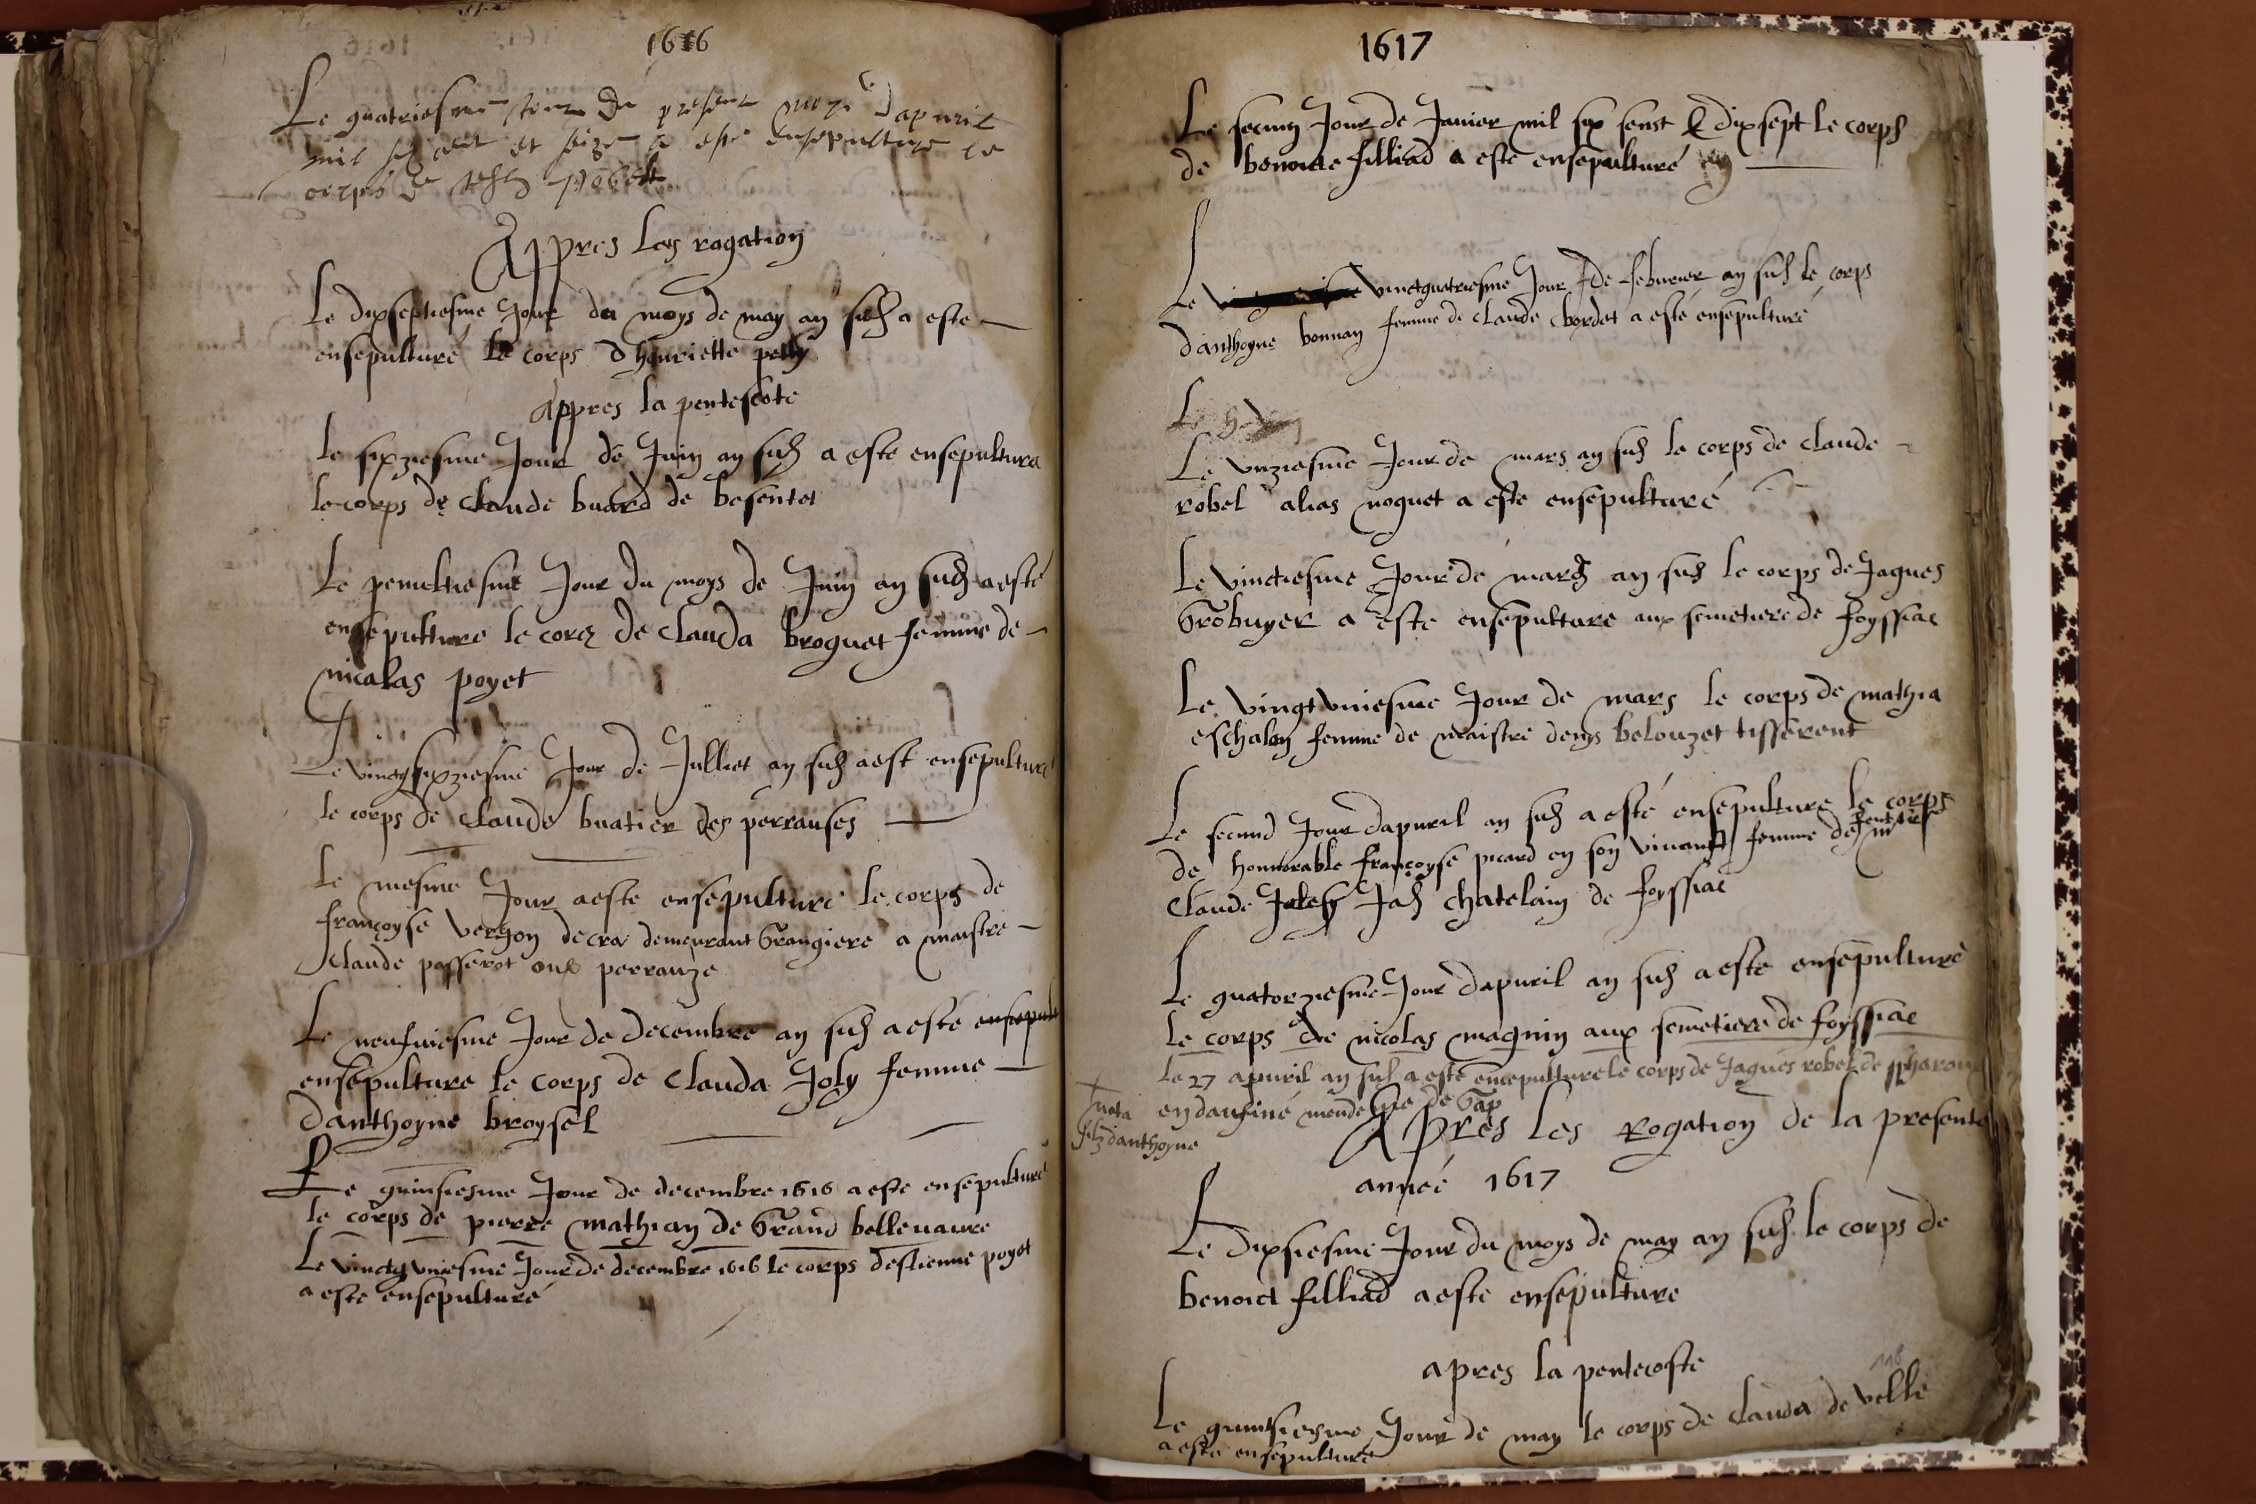 1616
Le quatriesme Jour du present moys dapuril
mil six cent et seize a esté ensepulturé le
corps de
Appres les rogation
Le dixseptiesme Jour du moys de may an susd a este
ensepulturé le corps dhenriette petty
Appres la pentescote
le sixziesme Jour de Juin an susd a este ensepulture
le corps de claude buard de besentet
Le penultiesme Jour du moys de Juin an susd a esté
ensepulture le corps de clauda broquet femme de
nicolas poyet
Le vinctgsixziesme Jour de Julliet an susd a est ensepulturé
le corps de claude buatier des perrauses
Le mesme Jour a este ensepulturé le corps de
françoyse vergon decra demeurant Grangiere a maistre
claude passerot perrauze
Le neufuiesme Jour de decembre an susd a esté ensepult
ensepulture le corps de clauda Joly femme
danthoyne broysel
Le quinsiesme Jour de decembre 1616 a este ensepulturé
le corps de pierre mathian de Grand bellevavre
Le vinctg uniesme Jour de decembre 1616 le corps destienne poyet
a este ensepulturé
1617
Le secung Jour de Janier mil six senst & dixsept le corps
de benoicte filliad a este ensepulturé
Le vinctquatriesme Jour de feburier an susd le corps
danthoyne bonnan femme de claude chordet a esté ensepulturé
Le
Le unziesme Jour de mars an susd le corps de claude
robel alias noguet a este ensepulturé
Le vinctiesme Jour de mars an susd le corps de Jaques
Grobuyer a este ensepulture aux semetiere de foyssiac
Le vingt uniesme Jour de mars le corps de mathia
eschalon femme de maistre denys belouzet tisserent
Le secund Jour dapuril an susd a esté ensepulture le corps
de honnorable françoyse picard en son vivant femme de m
claude Jah chatelain de foyssiac
Le quatorziesme Jour dapuril an susd a este ensepulturé
le corps de nicolas magnin aux semetiere de foyssiac
Le 27 apuril an susd a este ensepulture le corps de Jaques robel de
en daufiné de Gap
nota
filz danthoyne
Apres les Rogation de la presente
année 1617
Le dixsiesme Jour du moys de may an susd le corps de
benoict filliad a este ensepulture
apres la pentecoste
118
Le quinsiesme Jour de may le corps de clauda de velle
a este ensepulturé